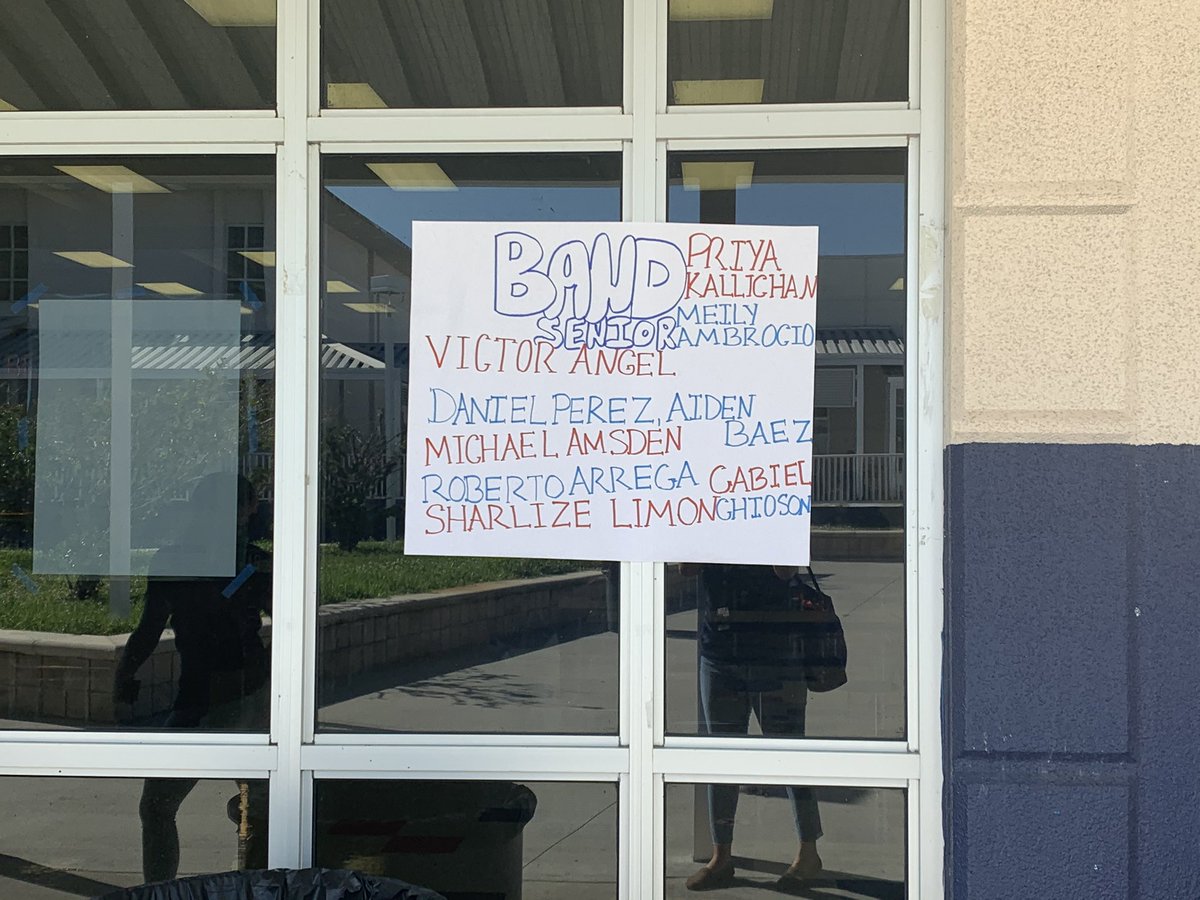 BAND
SENIOR
PRIYA
KALLICHAN
MEILY
AMBROCIO
VICTOR ANGEL
DANIEL PEREZ, AIDEN
BAEZ
MICHAEL AMSDEN
ROBERTO ARREGA
GABIEL
GHIOSON
SHARLIZE LIMON